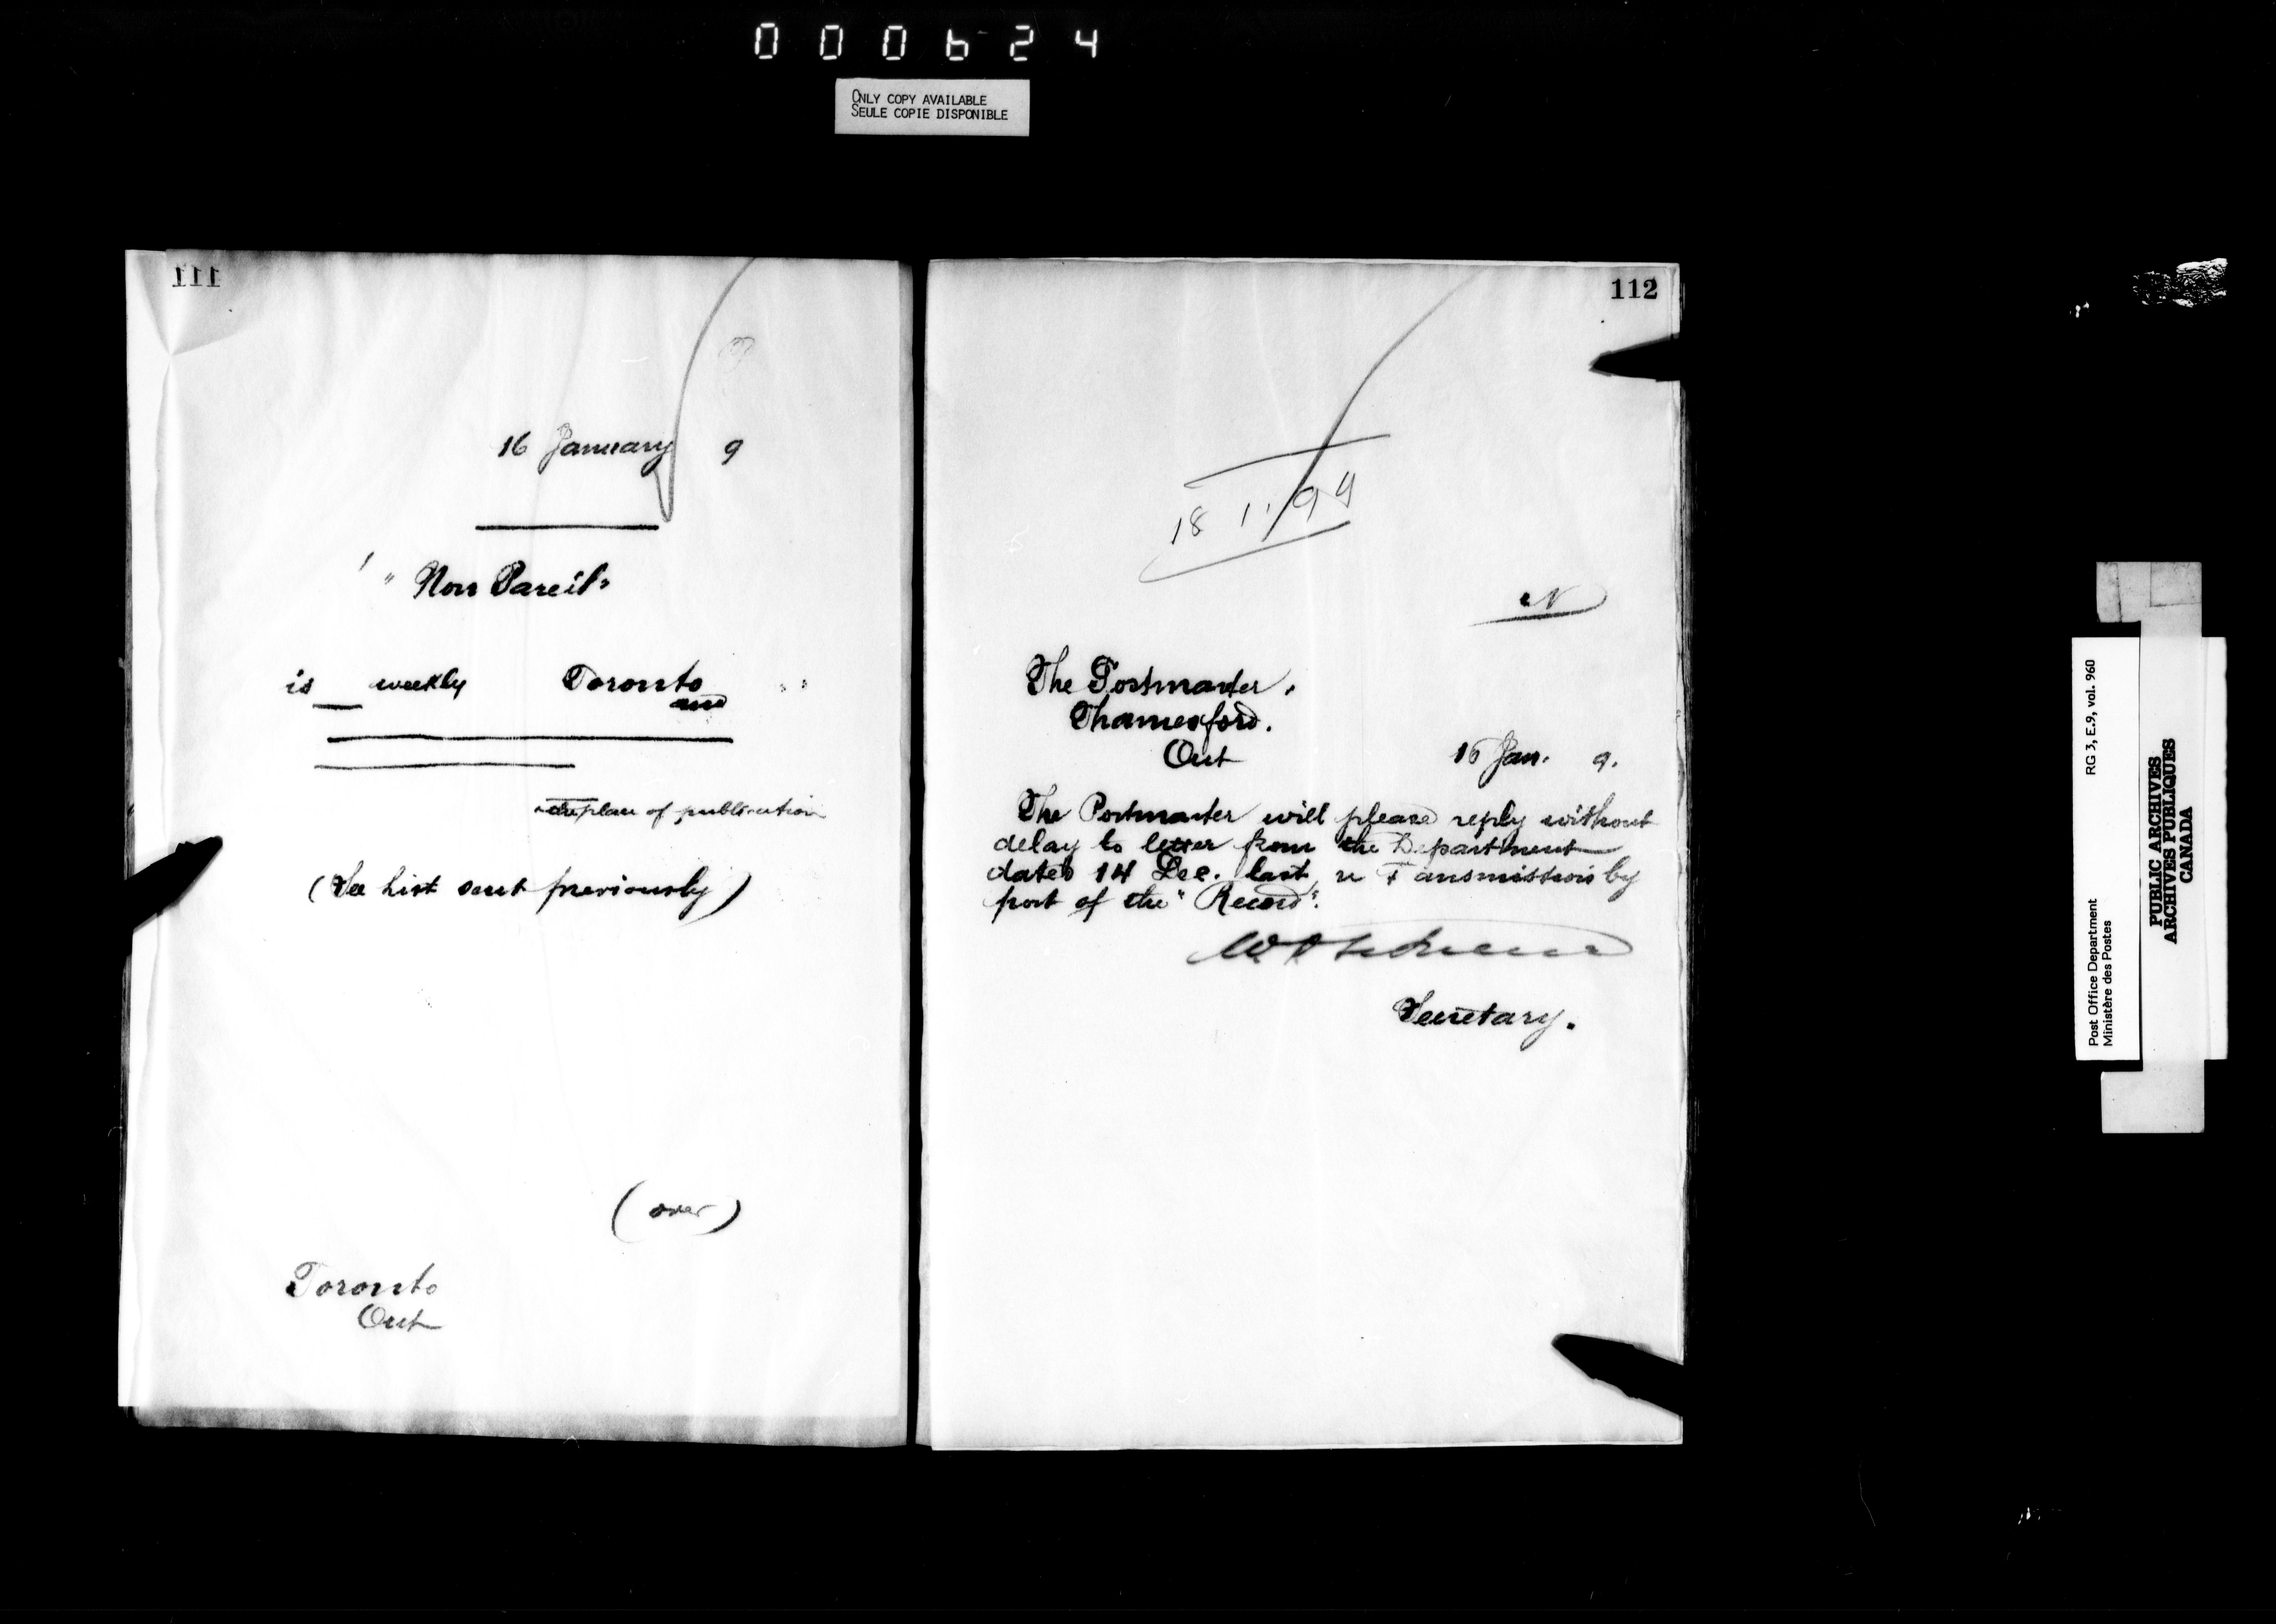 000624
ONLY COPY AVAILABLE
SEULE COPIE DISPONIBLE
111
16 January 9
"Non Pareil"
is weekly Toronto
and
place of publication
(See List sent previously)
(over)
Toronto
Ont
112
18 1. 99
The Postmaster.
Thamesford.
Ont
16 Jan. 9.
The Postmaster will please reply without
delay to letter from the Department
dated 14 Dec. last, re Transmission by
post of the "Record".
Secretary.
Post Office Department
Ministère des Postes
RG 3, E.9, vol. 960
PUBLIC ARCHIVES
ARCHIVES PUBLIQUES
CANADA